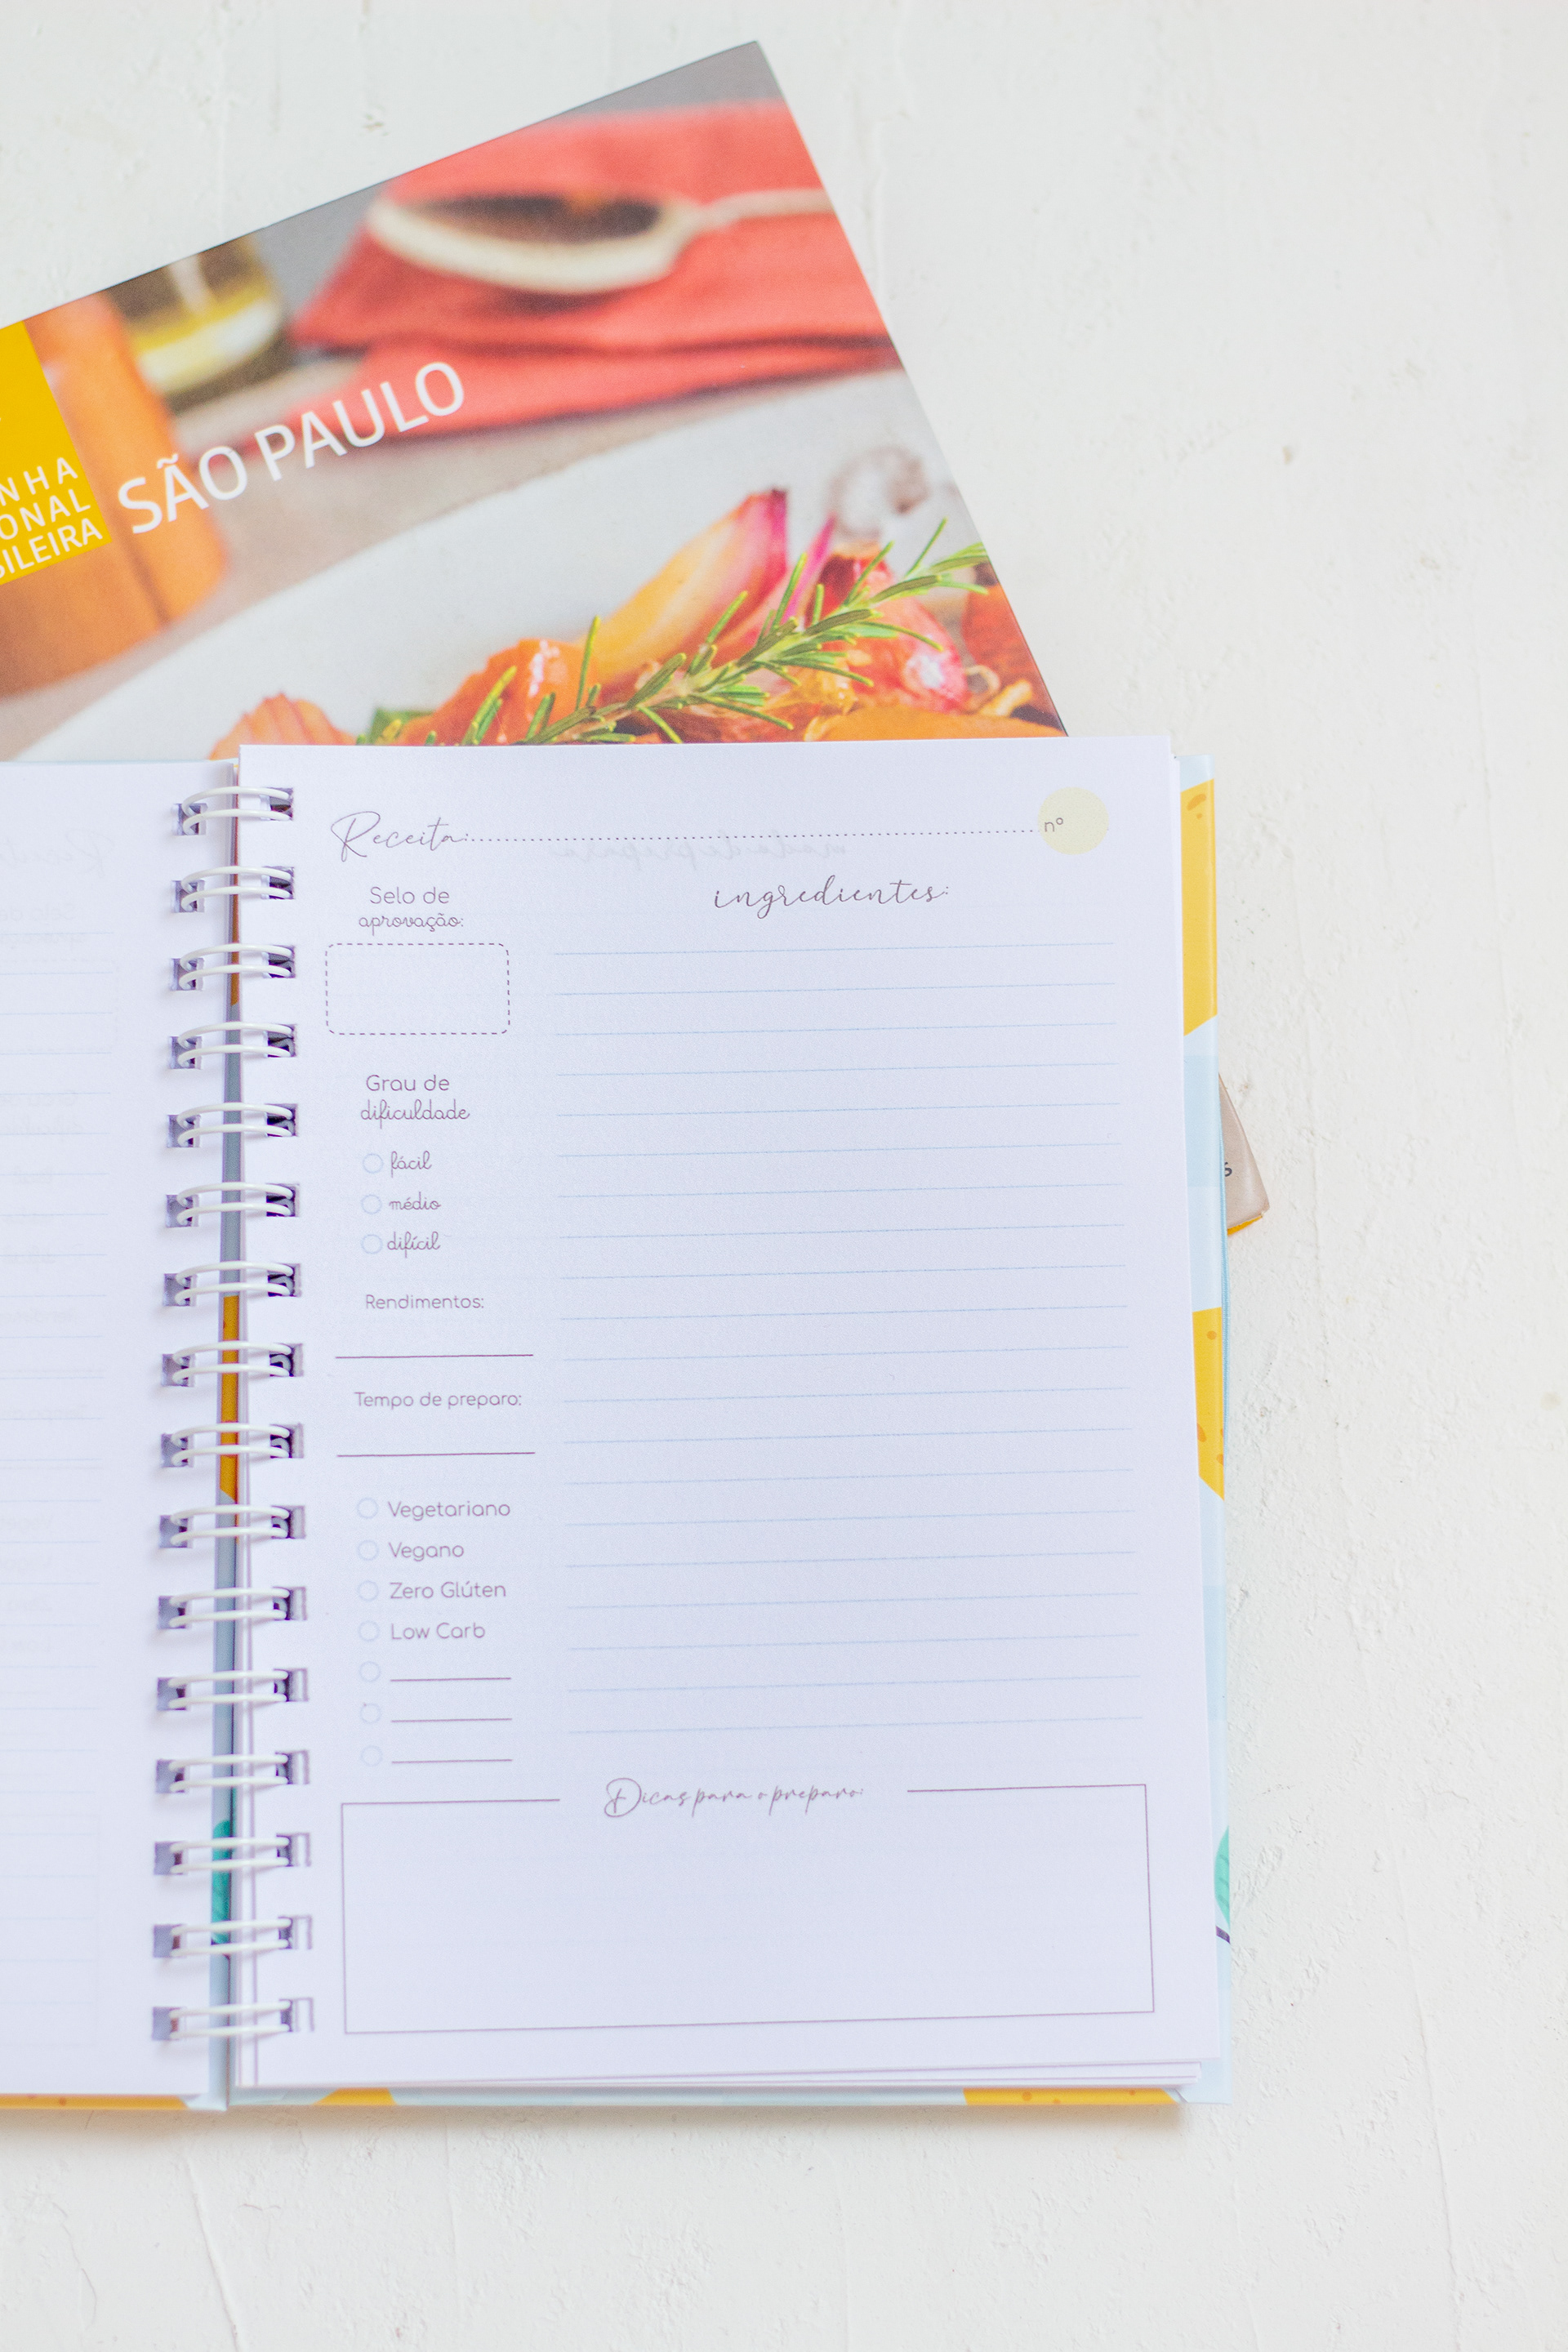 SÃO PAULO
NHA
ONAL
SILEIRA
Receita: nº
Selo de
aprovação:
ingredientes:
Grau de
dificuldade
fácil
médio
difícil
Rendimentos:
Tempo de preparo:
Vegetariano
Vegano
Zero Glúten
Low Carb
Dicas para o preparo: